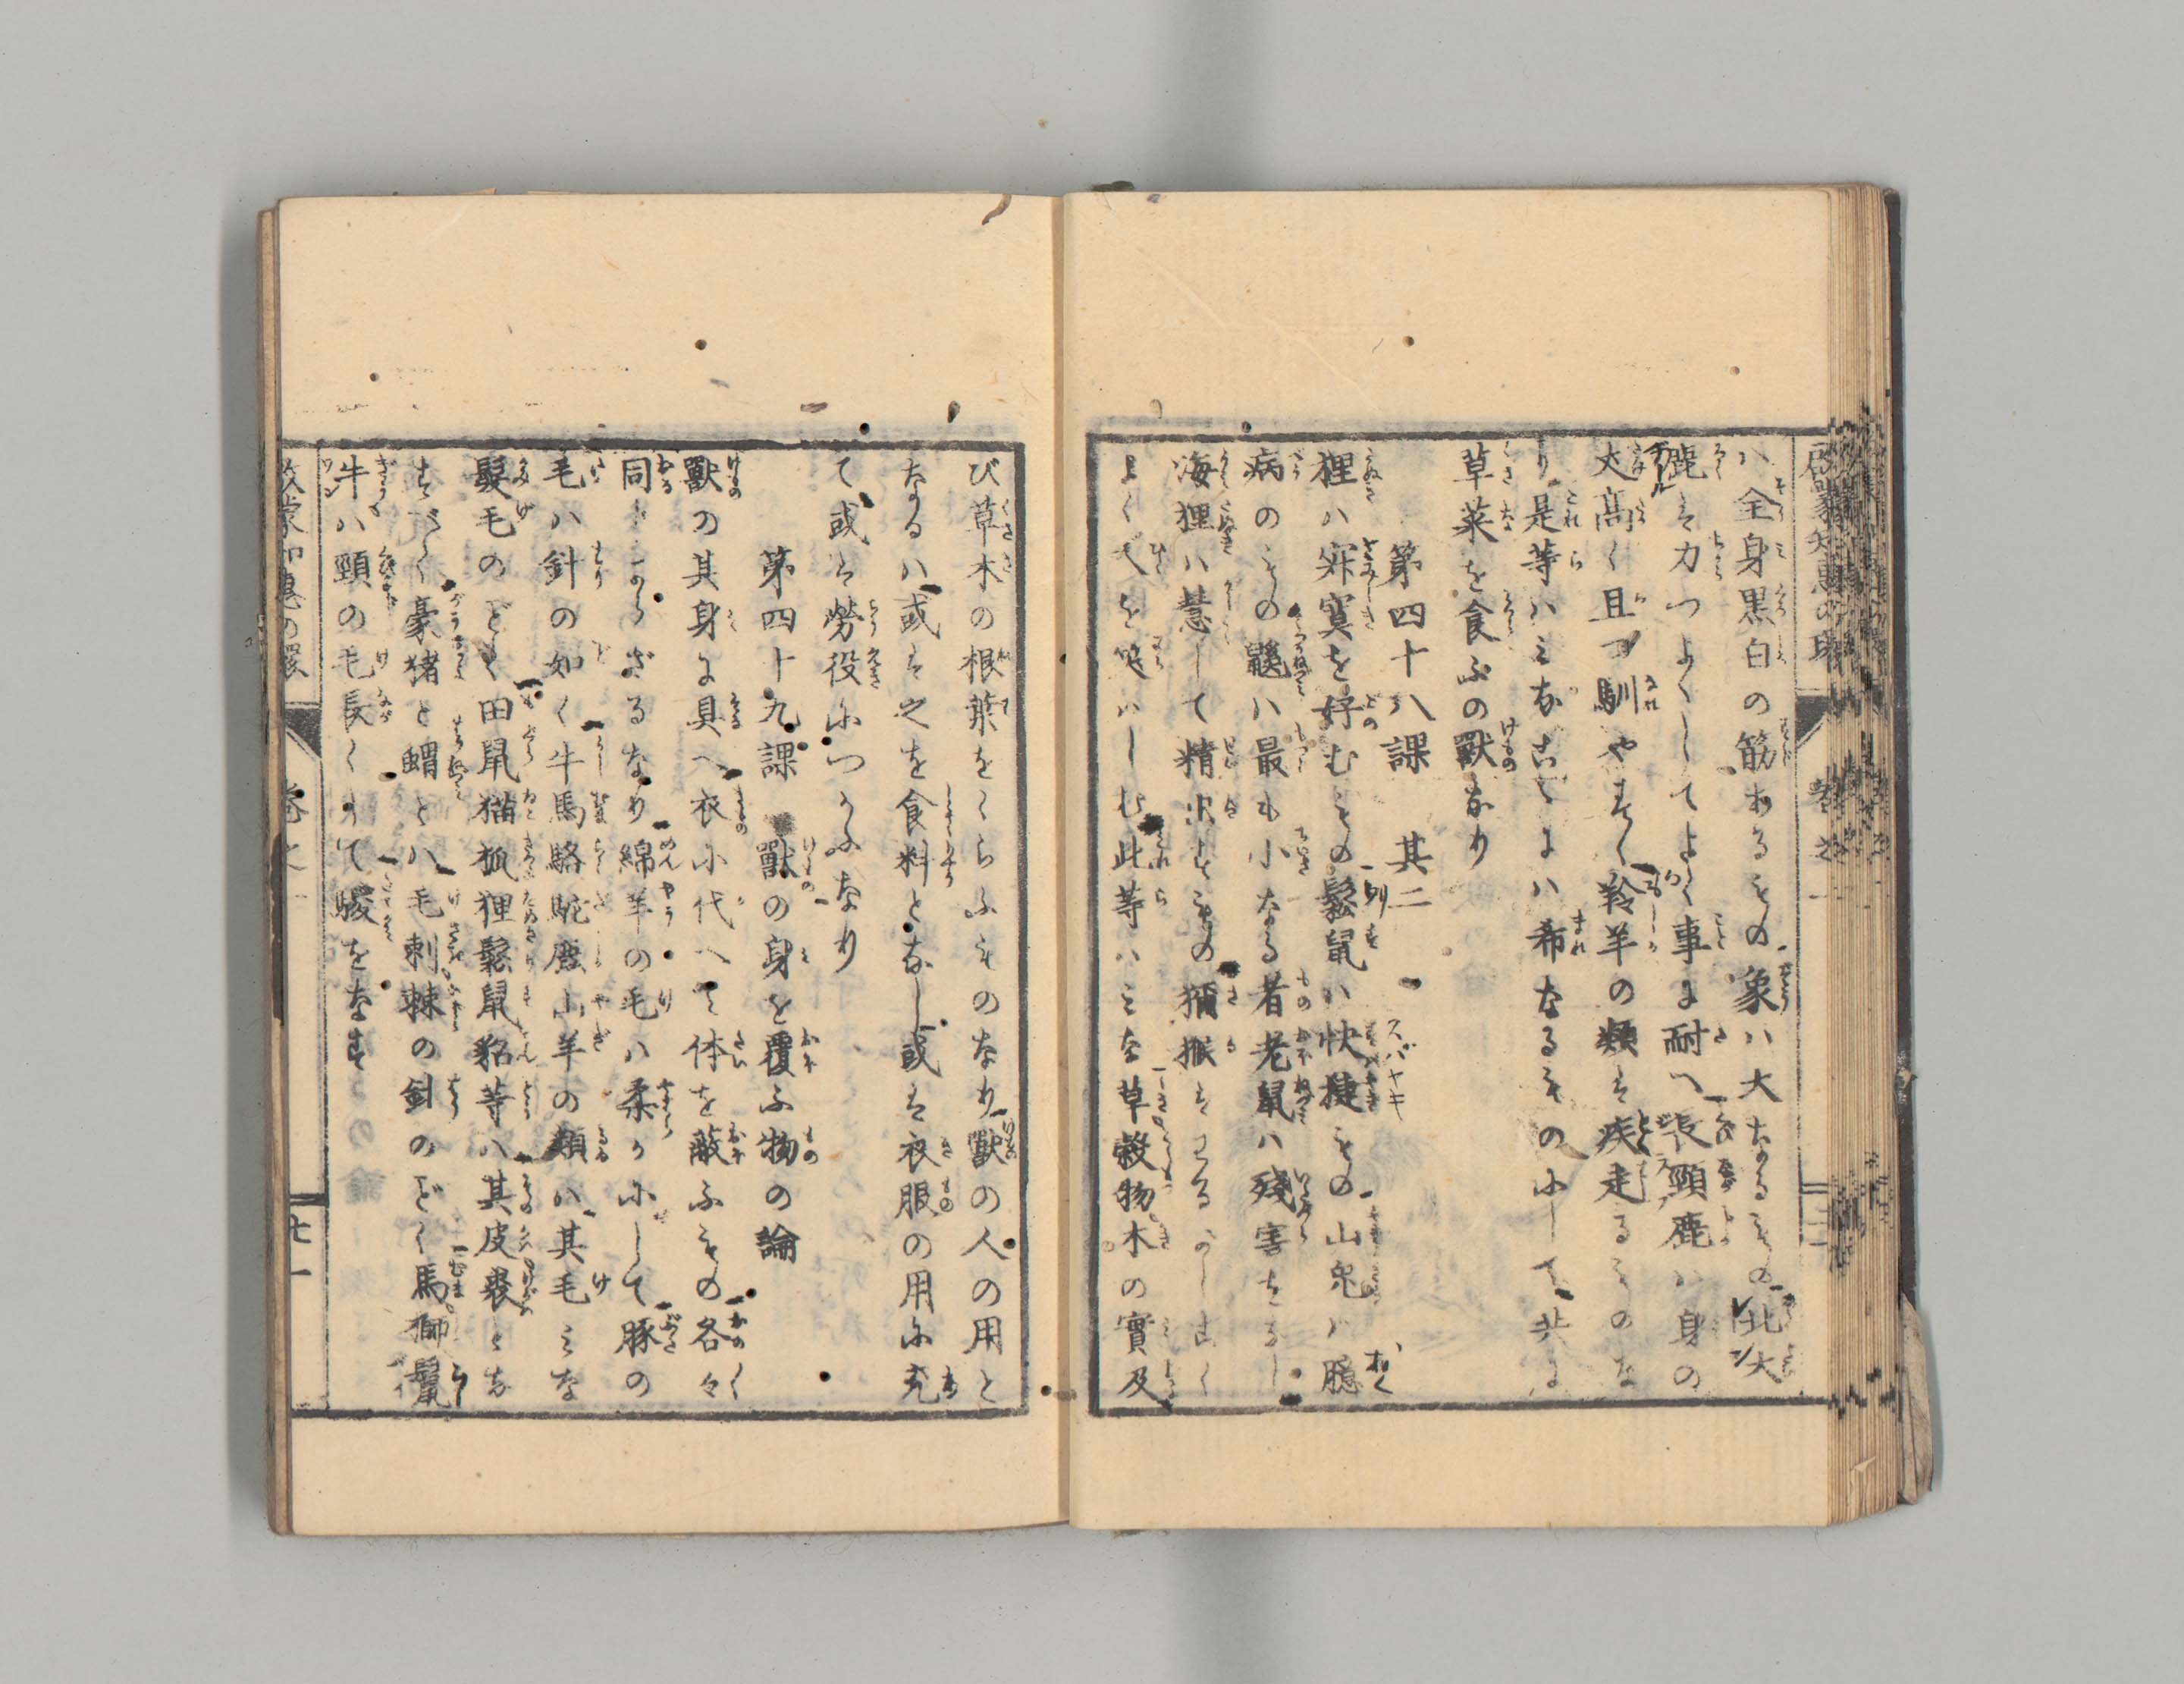 ハ全身黒白の筋あるもの象ハ大なるもの北大
鹿は力つよくしてよく事に耐へ長頸鹿ハ身の
大高く且つ馴やすく羚羊の類は疾走るものな
り是等ハみな
ハ希なるものにして共に
草菜を食ふの獸なり
第四十八課 其二
狸ハ寂寞を好むもの鬆鼠ハ快捷もの山兎ハ臆
スバヤキ
病のもの鼷ハ最も小なる者老鼠ハ殘害をなし
海狸ハ慧して精
もの獼猴は
よく人を笑ハしむ此等ハみな草穀物木の實及
び草木の根葉をくらふものなり獸の人の用と
なるハ或は之を食料となし或は衣服の用に充
て或は勞役につかふなり
第四十九課 獸の身を覆ふ物の論
獸の其身に具へ衣に代へて体を蔽ふもの各々
同じからざるなり綿羊の毛ハ柔かにして豚の
毛ハ針の如く牛馬駱駝鹿山羊の類ハ其毛みな
髮毛のごとく田鼠猫狐狸鬆鼠貂等ハ其皮裘とな
すべく豪猪と蝟とハ毛刺棘の針のごく馬獅鬣
牛ハ頸の毛長くして騣をなす
啓蒙知惠の環
卷之一
廿一